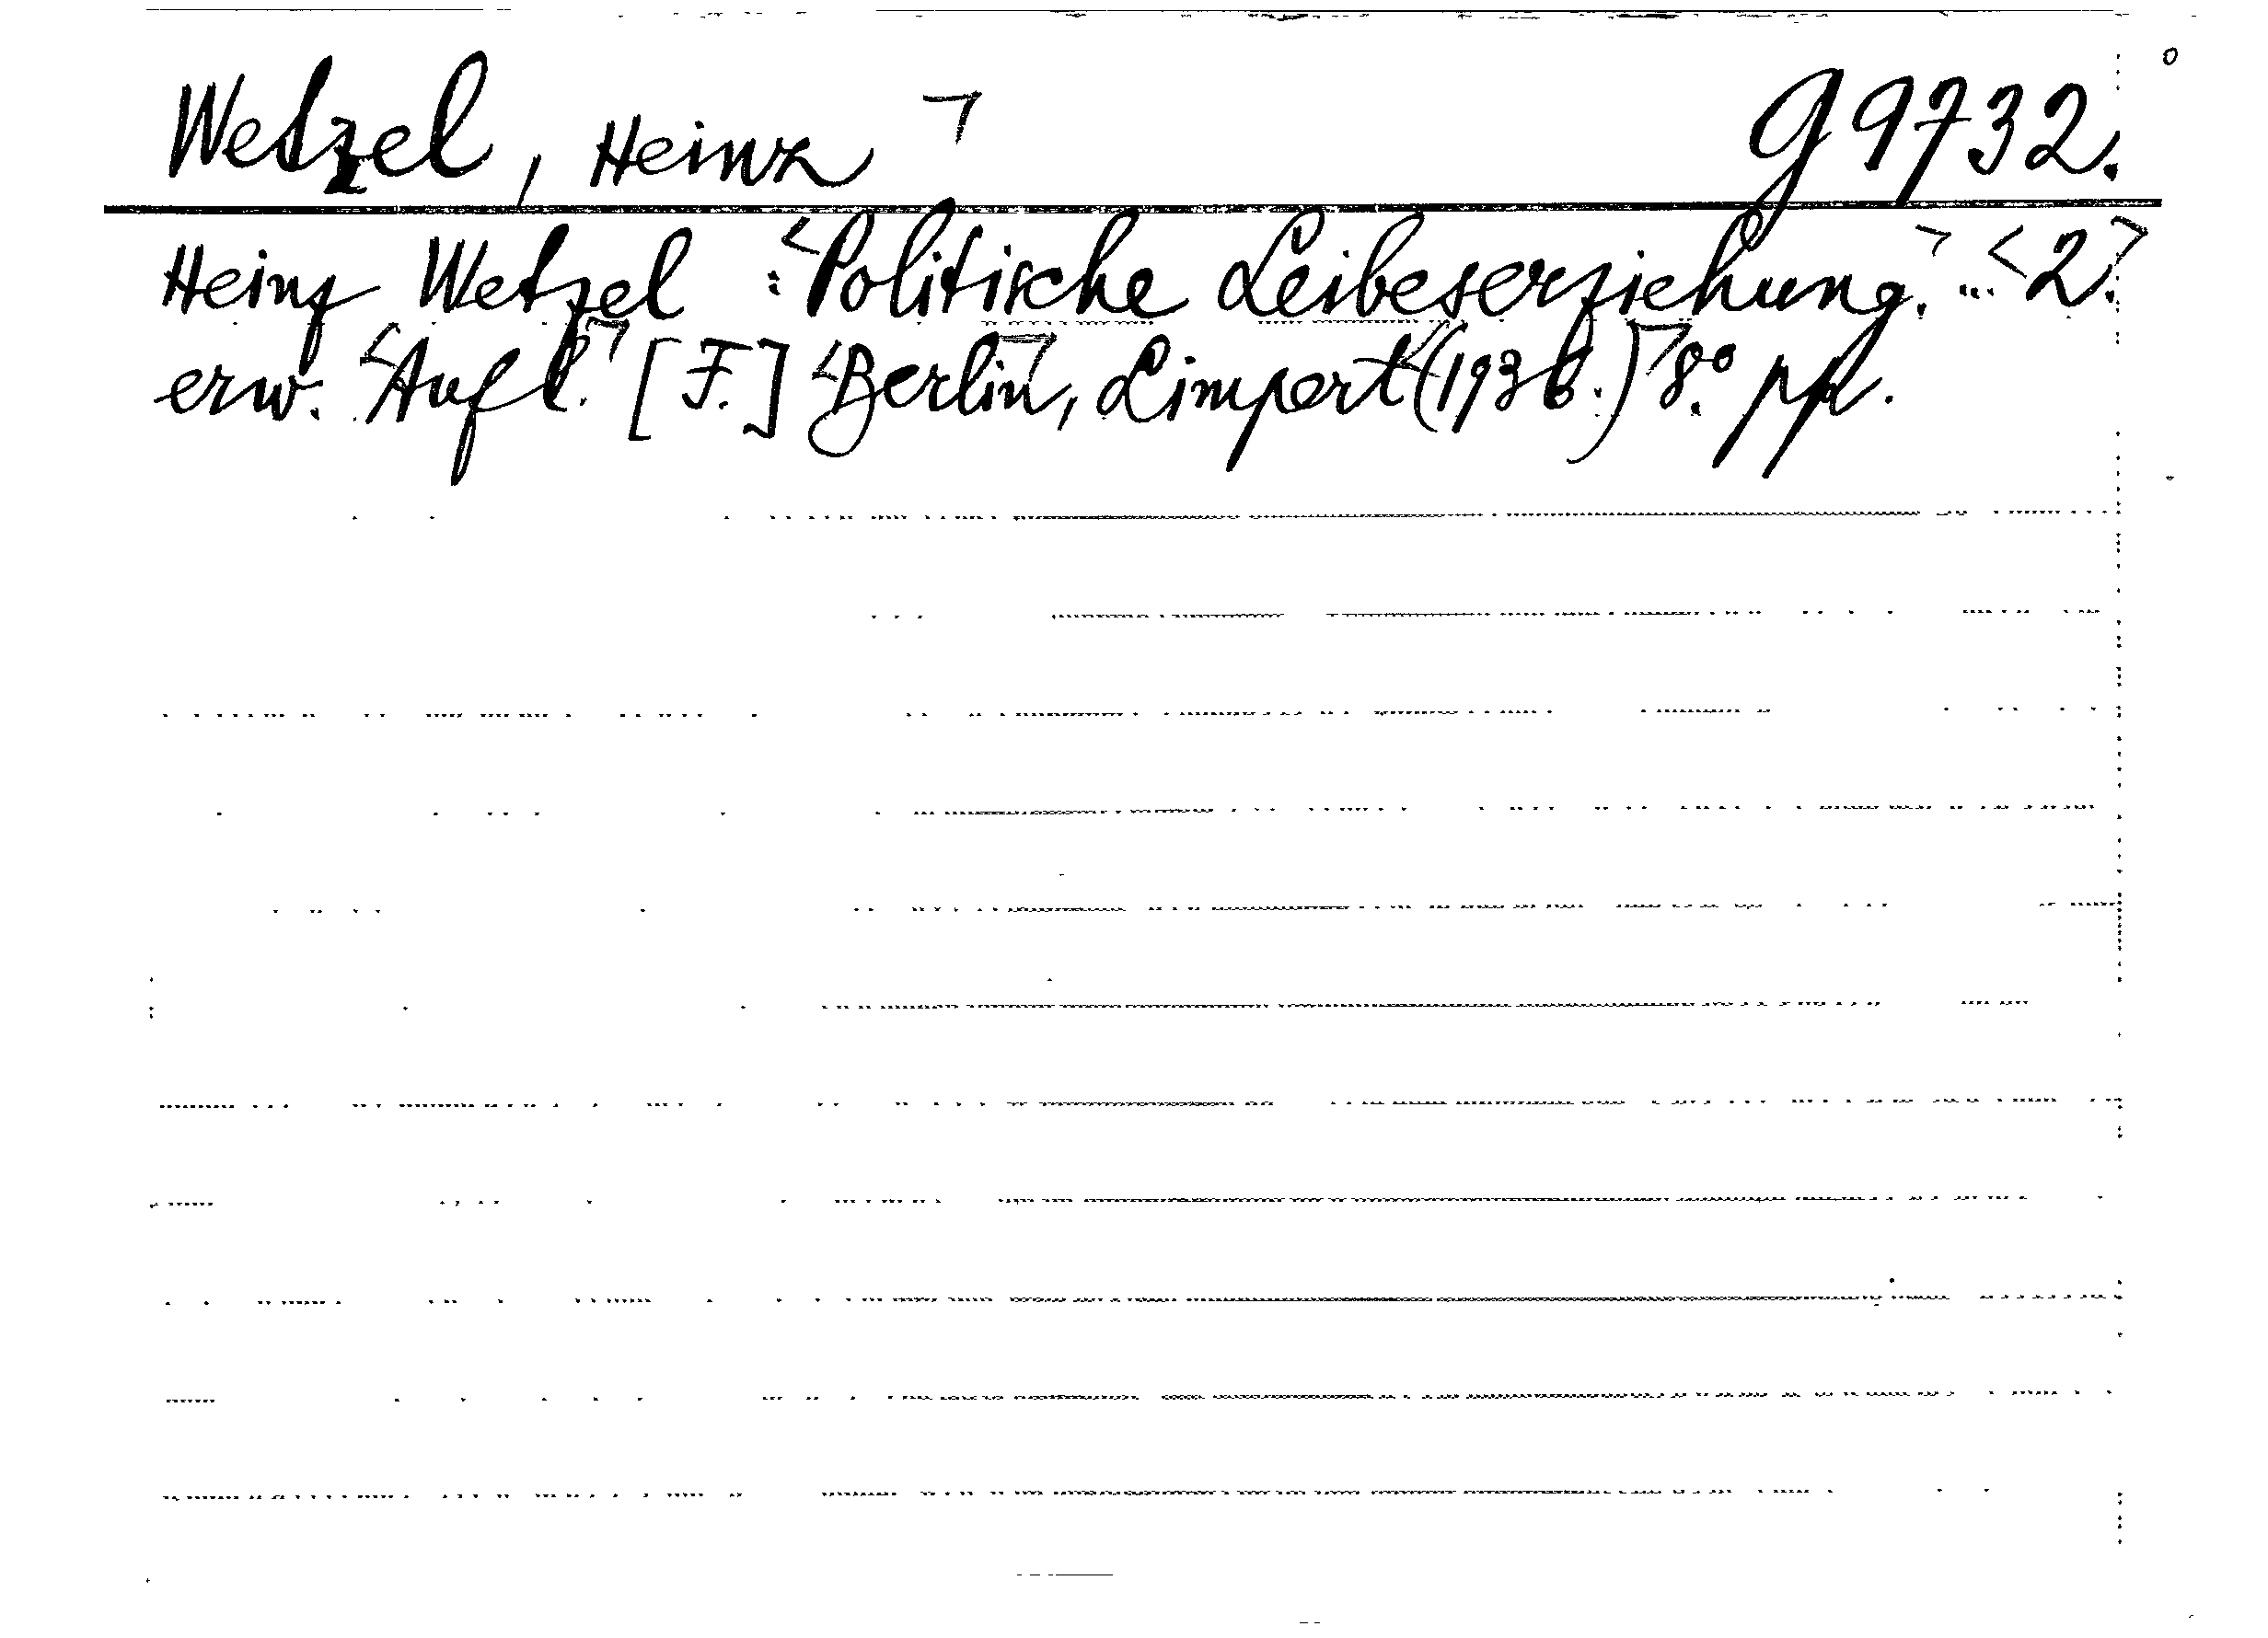 Wetzel, Heinz ㄱ G 9732.
Heinz Wetzel : <Politische Leibeserziehung.ㄱ ... <2.ㄱ
erw. <Aufl.ㄱ [F.] <Berlinㄱ, Limpert <(1936.)ㄱ 8.° ppl.